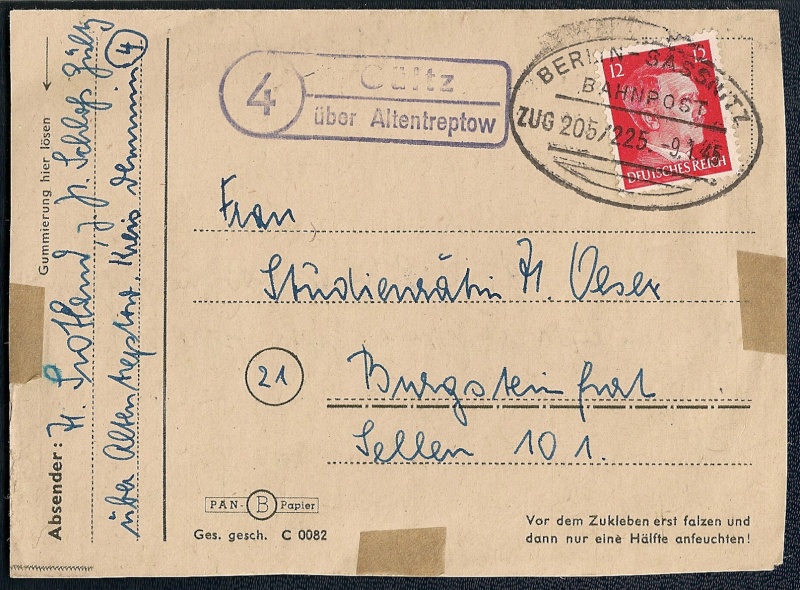 4
Gültz
über Altentreptow
BERLIN - SASSNITZ
BAHNPOST
ZUG 205/225. -9.1.45
12 12
DEUTSCHES REICH
Frau
Studienrätin H. Oeser
21
Burgsteinfurt
Sellen 101.
PAN- B Papier
Ges. gesch. C 0082
Vor dem Zukleben erst falzen und
dann nur eine Hälfte anfeuchten!
Gummierung hier lösen
Absender: H. z. Zt. Schloß Gültz
über Altentreptow. Kreis Demmin (4)